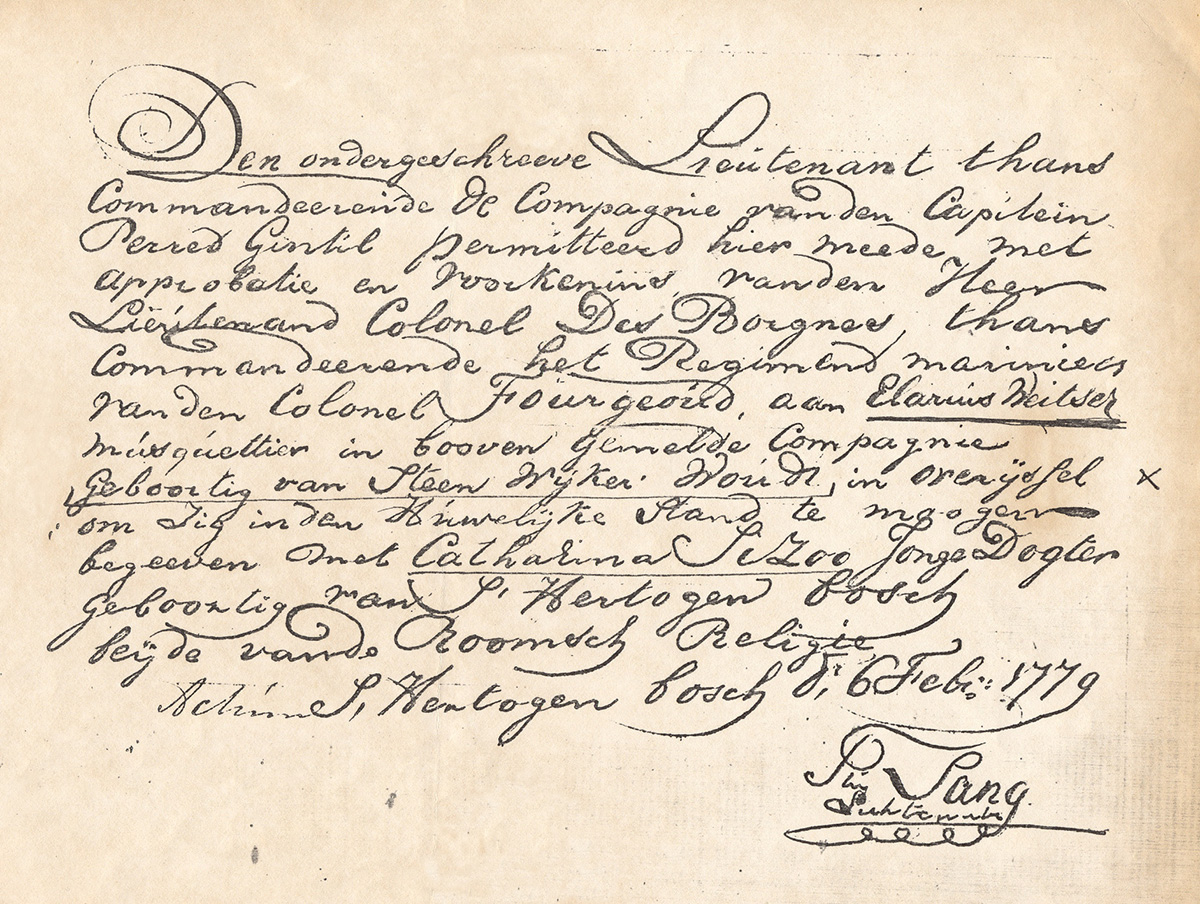 Den ondergeschreeve Lieutenant thans
Commandeerende de Compagnie van den Capitein
Perret Gintil permitteerd hier meede met
approbatie en voorkennius van den Heer
Lieútenand Colonel Des Borgnes, thans
Commandeerende het Regimend mariniers
van den Colonel Foúrgeoúd, aan Elarius Weitser
músquettier in booven gemelde Compagnie
Geboortig van Steen Wijker Woúdt, in overijssel x
om Zig in den Húwelijke Stand te moogen
begeeven met Catharina Si Zoo Jonge Dogter
geboortig van S, Hertogen bosch
beijde van de Roomsch Religie
Actúm S, Hertogen bosch d, 6 Feb: 1779
Lang